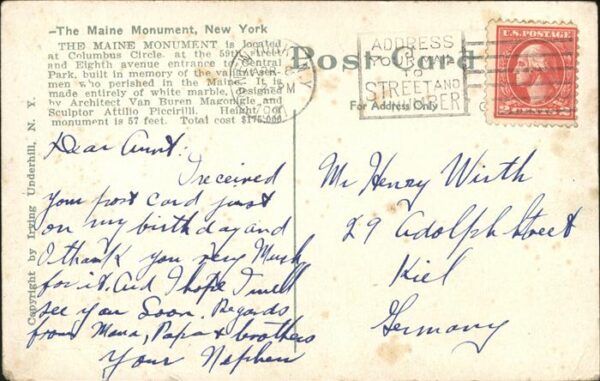 —The Maine Monument, New York
THE MAINE MONUMENT is located
at Columbus Circle, at the 59th street
and Eighth avenue entrance to Central
Park, built in memory of the valiant
men who perished in the Maine. It is
made entirely of white marble, designed
by Architect Van Buren Magonigle and
Sculptor Attilio Piccirilli. Height of
monument is 57 feet. Total cost $175,000.
Post Card
For Address Only
ADDRESS
YOUR
TO
STREET AND
NUMBER
N.Y.
PM
U.S. POSTAGE
2 CENTS 2
Copyright by Irving Underhill, N. Y.
Dear Aunt:
I received
your post card just
on my birthday and
I thank you very Much
for it. And I hope I will
see you Soon. Regards
from Mama, Papa & brothers
Your Nephew
Mr Henry Wirth
29 Adolph Street
Kiel
Germany